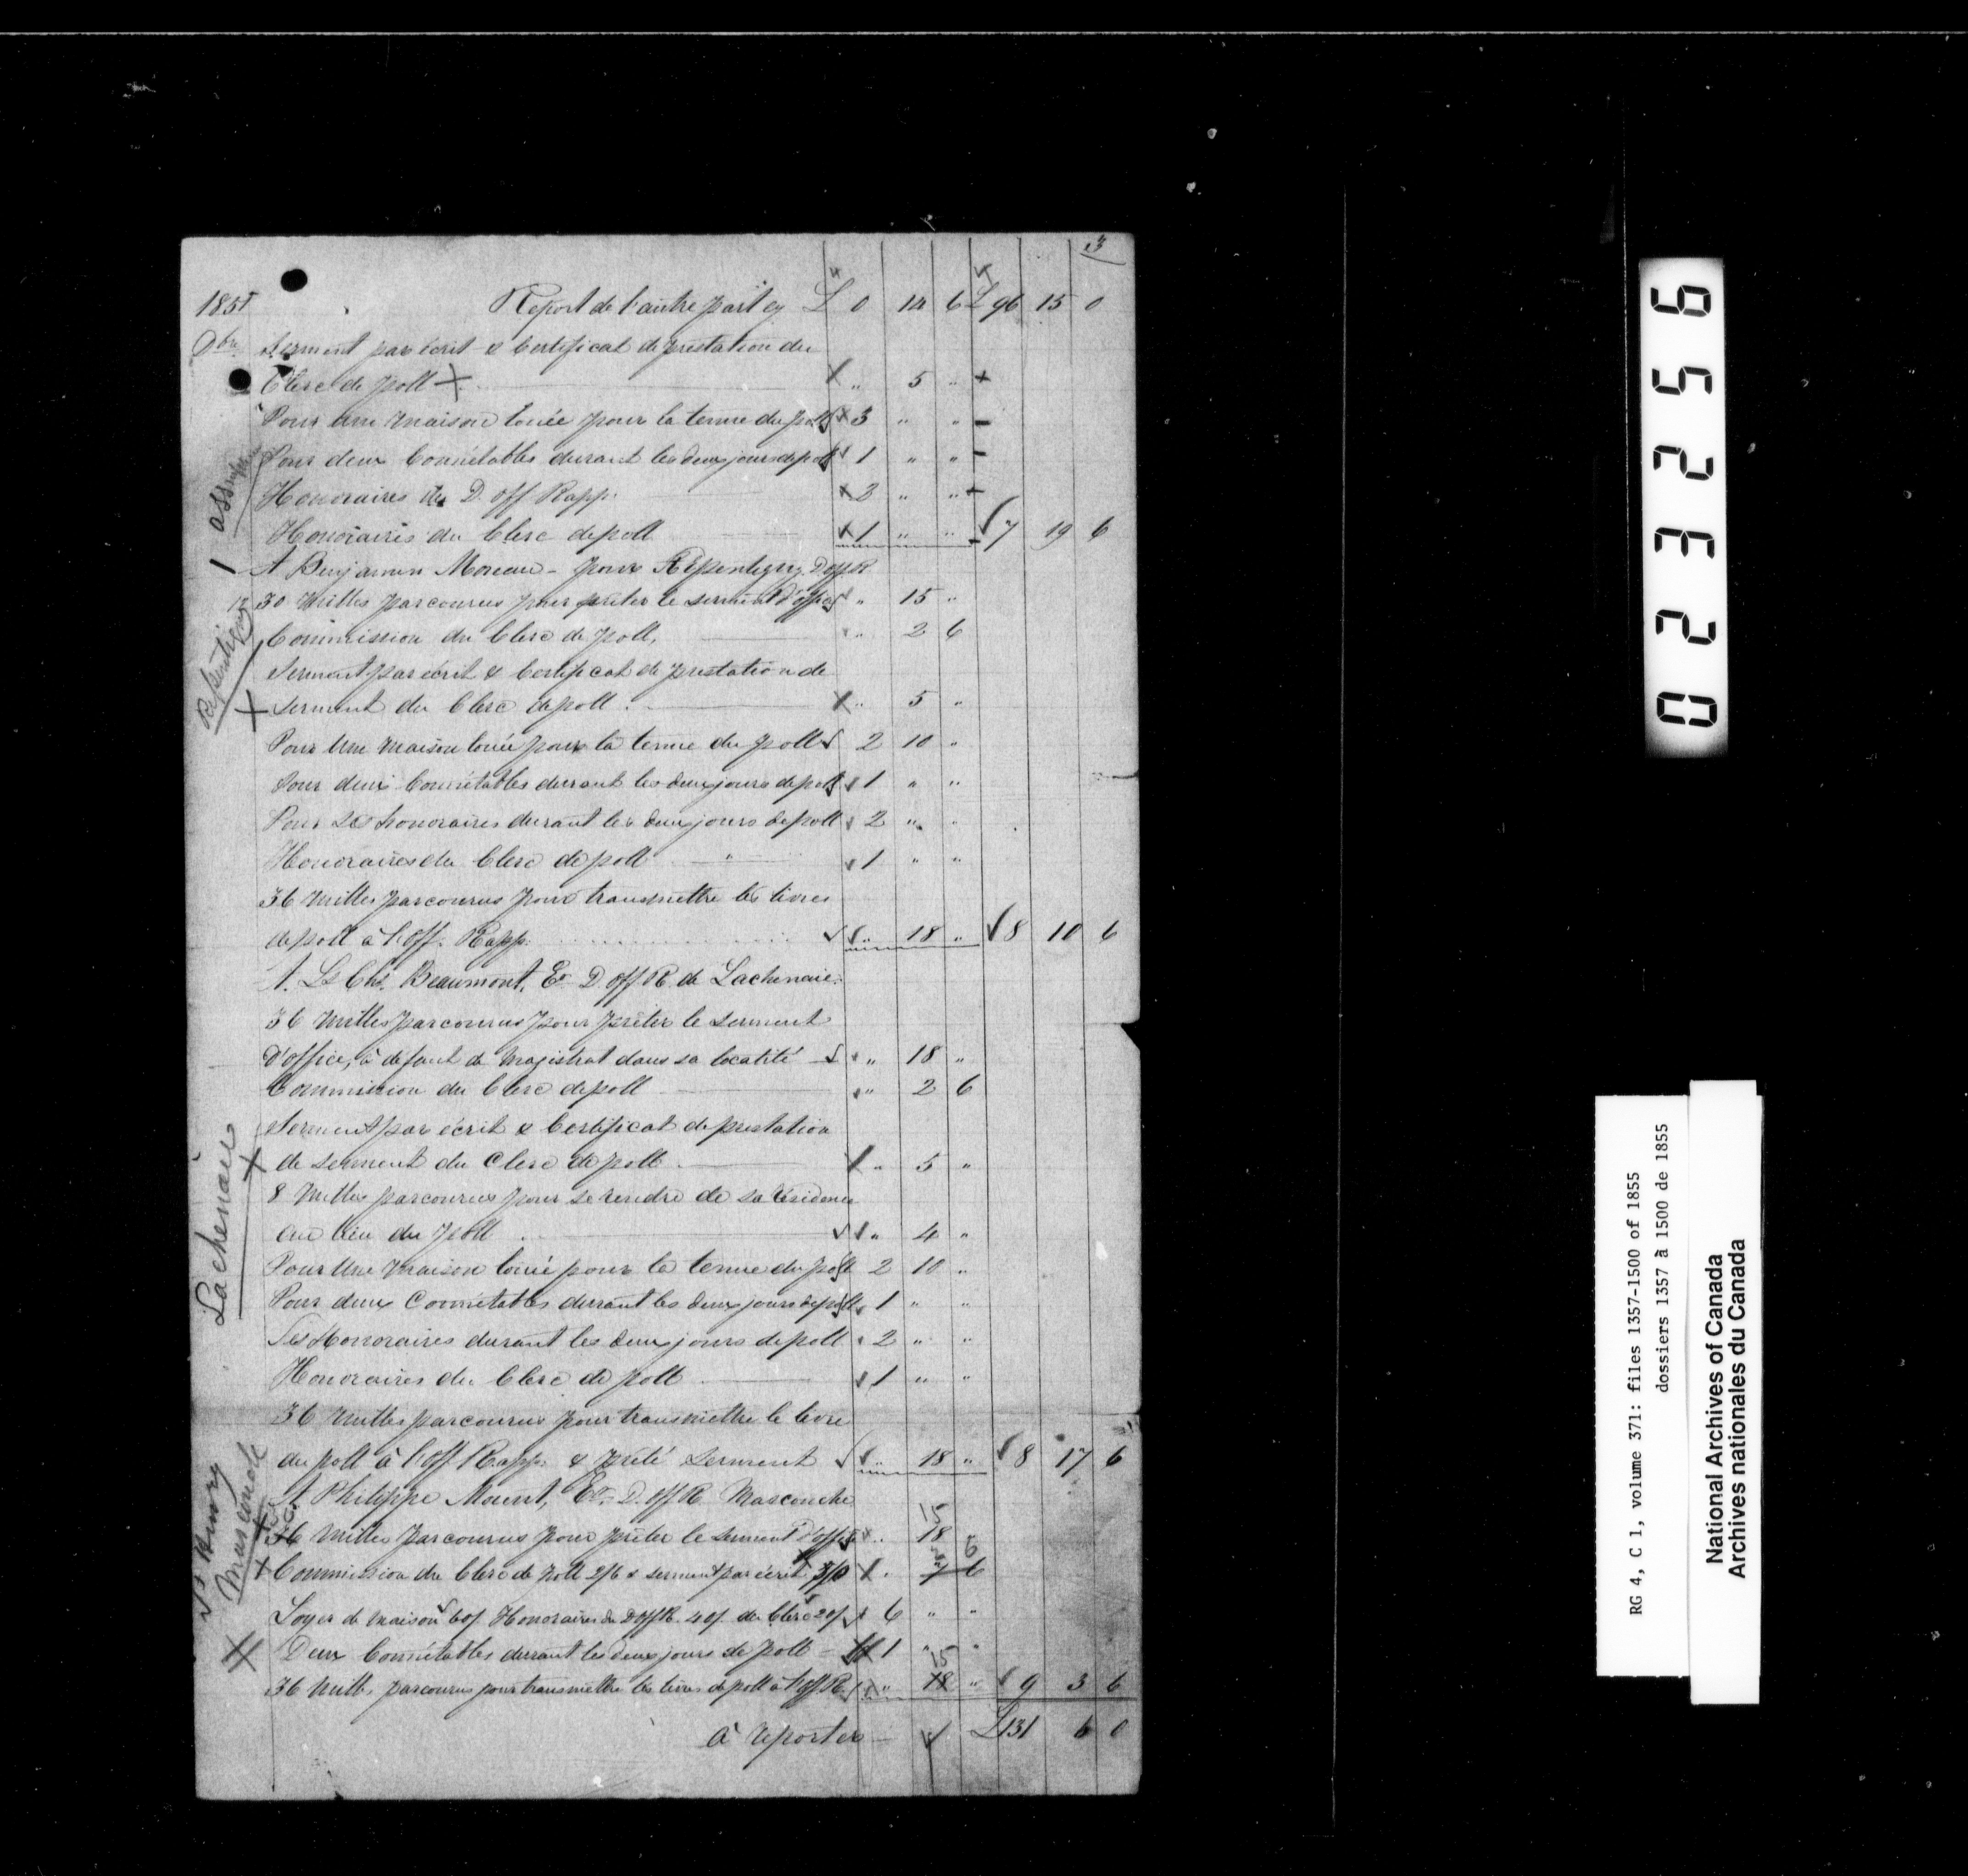 3
1855 Report de l'autre part cy £ 0 14 6 £ 96 15 0
9bre Serment par écrit & Certificat de prestation du
Clerc de poll " 5 "
Pour une maison louée pour la tenue du poll 3 " "
Pour deux Connétables durant les deux jours de poll 1 " "
Honoraires du D. off Rapp.
Honoraires du Clerc de poll 1 " " 7 19 6
A Benjamin Moreau - pour Repentigny D off R
30 Milles parcourus pour prêter le serment d'office " 15 "
Commission du Clerc de poll, " 2 6
Serment par écrit & Certificat de prestation de
serment du Clerc de poll. " 5 "
Pour une maison louée pour la tenue du poll 2 10 "
Pour deux Connétables durant les deux jours de poll 1 " "
Pour ses honoraires durant les deux jours de poll 2 " "
Honoraires du Clerc de poll " 1 " "
36 Milles parcourus pour transmettre les livres
de poll à l'Off. Rapp. " 18 " 8 10 6
A. Ls Chs. Beaumont, Er D off R. de Lachenaie.
36 Milles parcourus pour prêter le serment
d'office, à défaut de Magistrat dans sa localité " 18 "
Commission du Clerc de poll " 2 6
Serment par écrit & Certificat de prestation
de serment du Clerc de poll " 5 "
8 Milles parcourus pour se rendre de sa résidence
au lieu du poll " 4 "
Pour une maison louée pour la tenue du poll 2 10 "
Pour deux Connétables durant les deux jours de poll 1 " "
Ses Honoraires durant les deux jours de poll 2 " "
Honoraires du Clerc de poll 1 " "
36 Milles parcourus pour transmettre le livre
du poll à l'Off Rapp. & prêté serment " 18 " 8 17 6
A Philippe Mount, Er. D. off R Mascouche
15
36 Milles Parcourus pour prêter le serment d'office " 18
Commission du Clerc de Poll 2/6 & serment par écrit 5/0 " 7 6
Loyer de maison 60/ Honoraires du D off R. 40/ du Clerc 20/ 6 " "
Deux Connétables durant les deux jours de poll - 1 " "
15
36 Mills. parcourus pour transmettre les livres de poll à l'off R " 18 " 9 3 6
à reporter £131 6 0
Repentigny
Lachenaie
St Henry
Mascouche
023256
RG 4, C 1, volume 371: files 1357-1500 of 1855
dossiers 1357 à 1500 de 1855
National Archives of Canada
Archives nationales du Canada